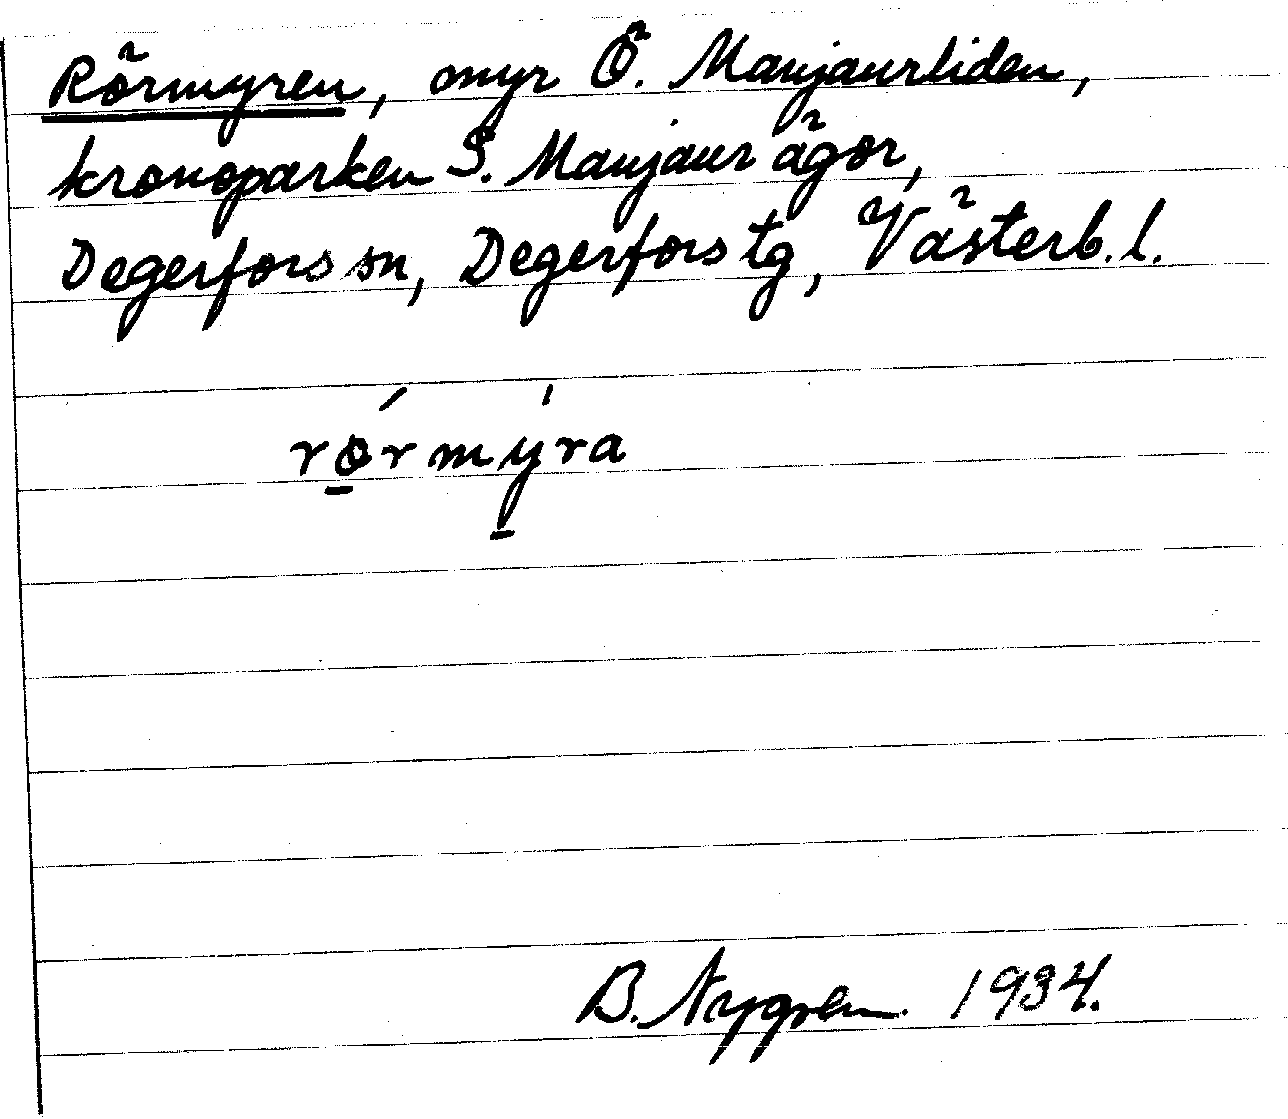 Rörmyren, myr Ö. Manjaurliden,
kronoparken S. Manjaur ägor,
Degerfors sn, Degerfors tg, Västerb. l.
rǿ̱rmy̱̍ra
B. Nygren 1934.